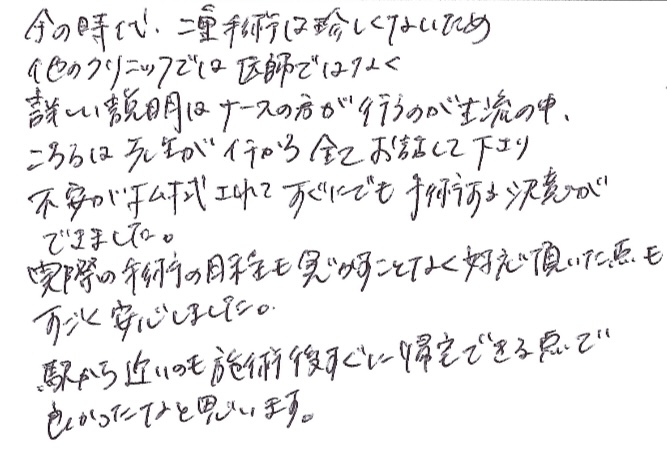 今の時代、二重手術は珍しくないため
他のクリニックでは医師ではなく
詳しい説明はナースの方が行うのが主流の中、
こちらは先生がイチから全てお話して下さり
不安が払拭されてすぐにでも手術する決意が
できました。
実際の手術の日程も急かすことなく好んで頂いた点も
すごく安心しました。
駅から近いのも施術後すぐに帰宅できる点で
良かったなと思います。